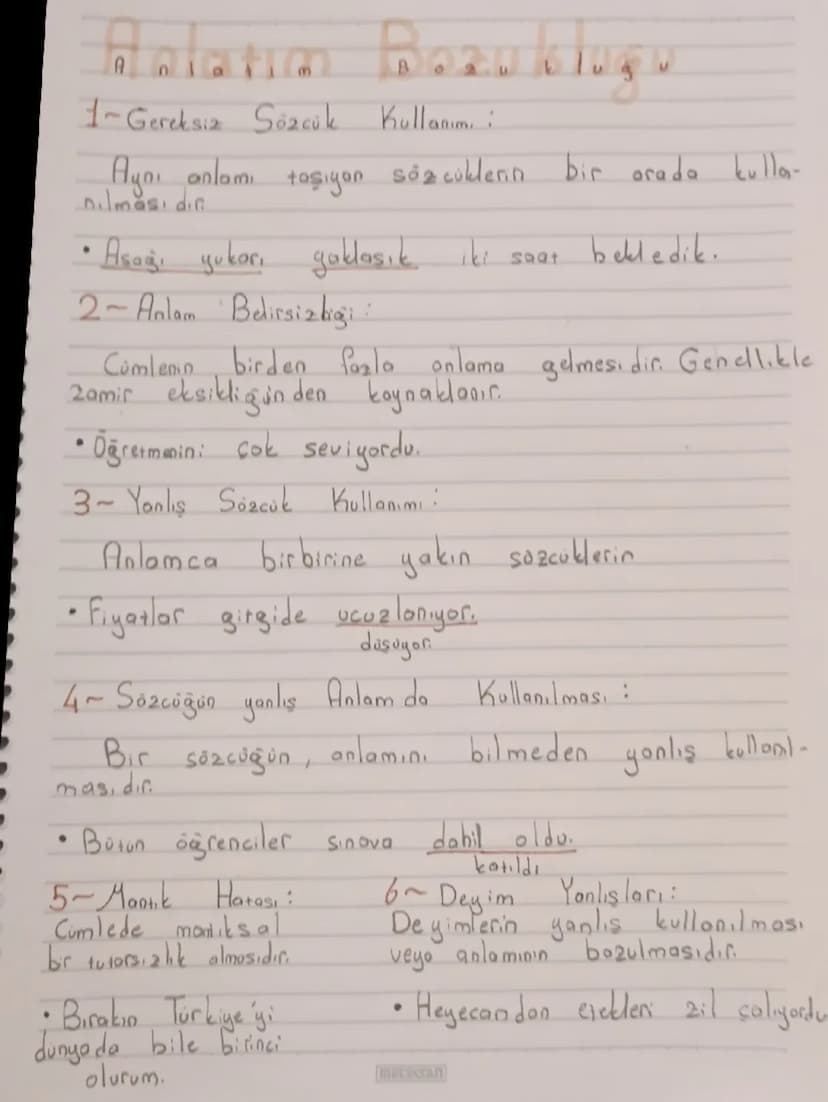 Anlatım Bozukluğu
1- Gereksiz Sözcük Kullanımı:
Aynı anlamı taşıyan sözcüklerin bir arada kulla-
nılmasıdır.
• Aşağı yukarı yaklaşık iki saat bekledik.
2- Anlam Belirsizliği:
Cümlenin birden fazla anlama gelmesidir. Genellikle
zamir eksikliğinden kaynaklanır.
• Öğretmenini çok seviyordu.
3- Yanlış Sözcük Kullanımı:
Anlamca birbirine yakın sözcüklerin
• Fiyatlar gitgide ucuzlanıyor.
düşüyor.
4- Sözcüğün yanlış Anlamda Kullanılması:
Bir sözcüğün, anlamını bilmeden yanlış kullanıl-
masıdır.
• Bütün öğrenciler sınava dahil oldu.
katıldı
5- Mantık Hatası:
Cümlede mantıksal
bir tutarsızlık olmasıdır.
• Bırakın Türkiye'yi
dünyada bile birinci
olurum.
6- Deyim Yanlışları:
Deyimlerin yanlış kullanılması
veya anlamının bozulmasıdır.
• Heyecandan etekleri zil çalıyordu